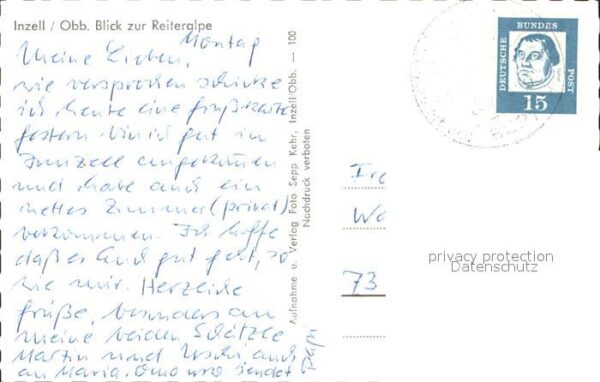 Inzell / Obb. Blick zur Reiteralpe
Montag
Meine Lieben,
wie versprochen schicke
ich heute eine Grußkarte
gestern bin ich gut in
Innzell angekommen
und habe auch ein
nettes Zimmer (privat)
bekommen. Ich hoffe
daß es Euch gut geht, so
wie mir. Herzliche
Grüße, besonders an
meine beiden Schätzle
Martin und Uschi, auch
an Maria, Oma usw. sendet
Papi
Aufnahme u. Verlag Foto Sepp Kehr, Inzell/Obb. — 100
Nachdruck verboten
DEUTSCHE
BUNDES
POST
15
Ire
Wo
73
privacy protection
Datenschutz